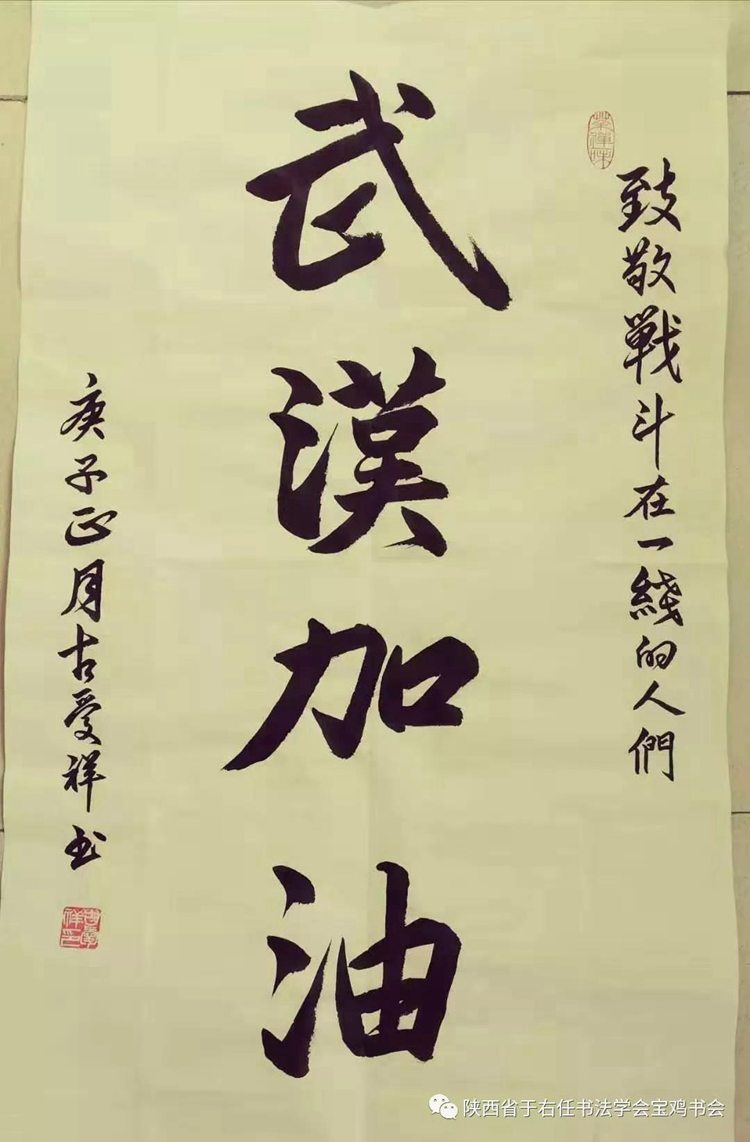 致敬戰斗在一綫的人們
武漢加油
庚子正月古受祥书
陕西省于右任书法学会宝鸡书会